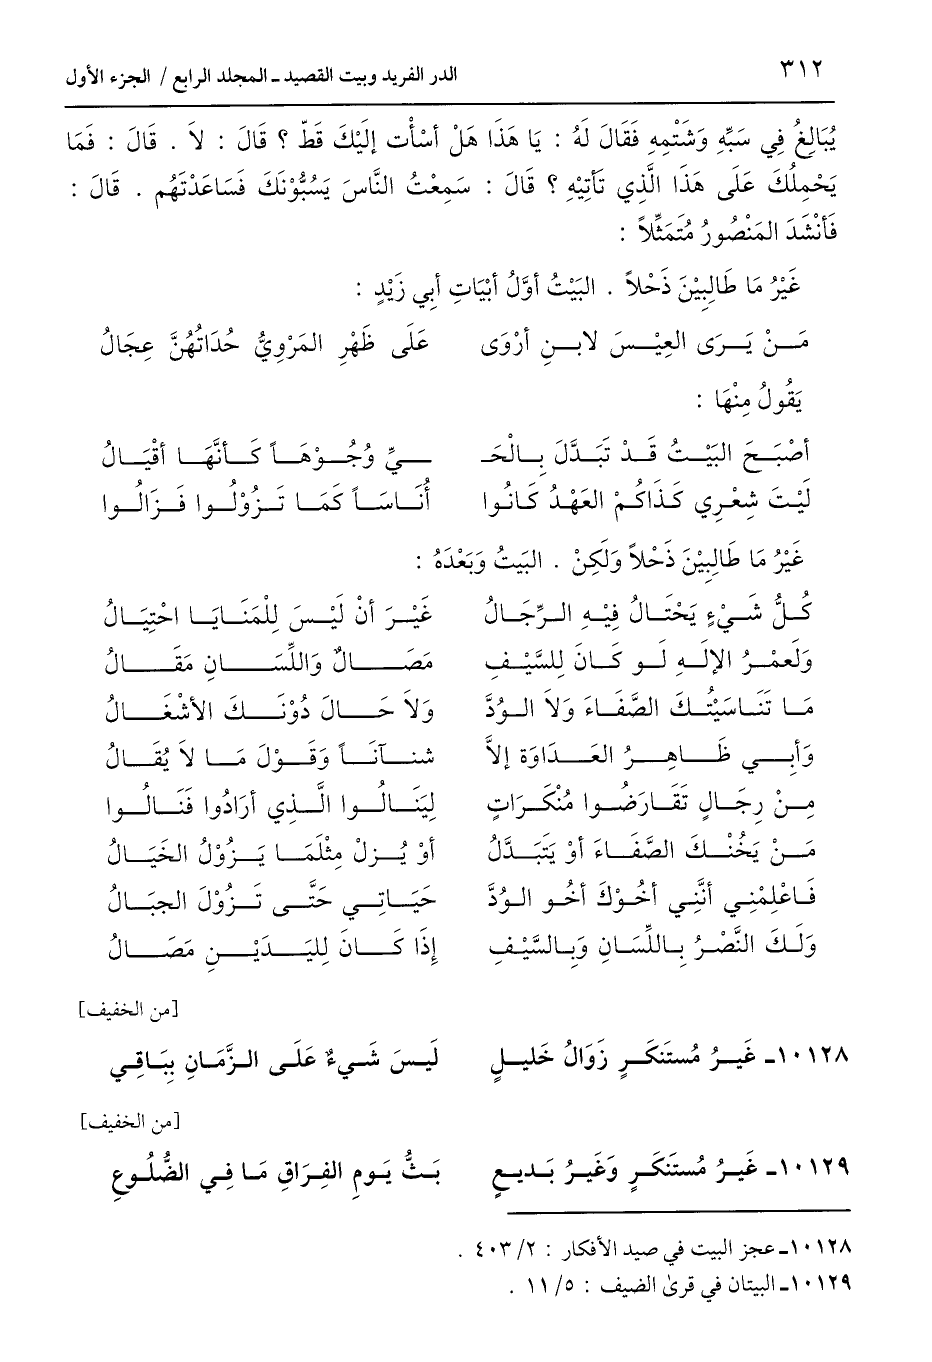 ٣١٢
الدر الفريد وبيت القصيد ـ المجلد الرابع / الجزء الأول
يُبَالِغُ فِي سَبِّهِ وَشَتْمِهِ فَقَالَ لَهُ : يَا هَذَا هَلْ أَسْأَت إِلَيْكَ قَطّ ؟ قَالَ : لاَ . قَالَ : فَمَا
يَحْمِلُكَ عَلَى هَذَا الَّذِي تَأتِيْهِ ؟ قَالَ : سَمِعْتُ النَّاسَ يَسُبُّوْنَكَ فَسَاعَدْتَهُم . قَالَ :
فَأنْشَدَ المَنْصُورُ مُتَمَثِّلاً :
غَيْرُ مَا طَالِبِيْنَ ذَحْلاً . البَيْتُ أوَّلُ أبْيَاتِ أبِي زَيْدٍ :
مَنْ يَرَى العِيْسَ لابنِ أرْوَى عَلَى ظَهْرِ المَرْوِيُّ حُدَاتُهُنَّ عِجَالُ
يَقُولُ مِنْهَا :
أصْبَحَ البَيْتُ قَدْ تَبَدَّلَ بِالْحَـ ـيِّ وُجُوْهَاً كَأنَّهَا أقْيَالُ
لَيْتَ شِعْرِي كَذَاكُمْ العَهْدُ كَانُوا أُنَاسَاً كَمَا تَزُوْلُوا فَزَالُوا
غَيْرُ مَا طَالِبِيْنَ ذَحْلاً وَلَكِنْ . البَيتُ وَبَعْدَهُ :
كُلُّ شَيْءٍ يَحْتَالُ فِيْهِ الرِّجَالُ غَيْرَ أنْ لَيْسَ لِلْمَنَايَا احْتِيَالُ
وَلَعمْرُ الإلَهِ لَو كَانَ لِلسَّيْفِ مَصَالٌ وَاللِّسَانِ مَقَالُ
مَا تَنَاسَيْتُكَ الصَّفَاءَ وَلاَ الوُدَّ وَلاَ حَالَ دُوْنَكَ الأشْغَالُ
وَأبِي ظَاهِرُ العَدَاوَة إلاَّ شنآنَاً وَقَوْلَ مَا لاَ يُقَالُ
مِنْ رِجَالٍ تَقَارَضُوا مُنْكَرَاتٍ لِيَنَالُوا الَّذِي أرَادُوا فَنَالُوا
مَنْ يَخُنْكَ الصَّفَاءَ أوْ يَتَبَدَّلُ أوْ يُزلْ مِثْلَمَا يَزُوْلُ الخَيَالُ
فَاعْلِمْنِي أنَّنِي أخُوْكَ أخُو الوُدَّ حَيَاتِي حَتَّى تَزُوْلَ الجبَالُ
وَلَكَ النَّصْرُ بِاللِّسَانِ وَبِالسَّيْفِ إذَا كَانَ لِليَدَيْنِ مَصَالُ
[من الخفيف]
١٠١٢٨ـ غَيرُ مُستَنكَرٍ زَوَالُ خَليلٍ لَيسَ شَيءٌ عَلَى الزَّمَانِ بِبَاقِي
[من الخفيف]
١٠١٢٩ـ غَيرُ مُستَنكَرٍ وَغَيرُ بَديعٍ بَثُّ يَومِ الفِرَاقِ مَا فِي الضُّلُوعِ
١٠١٢٨ـ عجز البيت في صيد الأفكار : ٢/ ٤٠٣ .
١٠١٢٩ـ البيتان في قرىٰ الضيف : ٥/ ١١ .